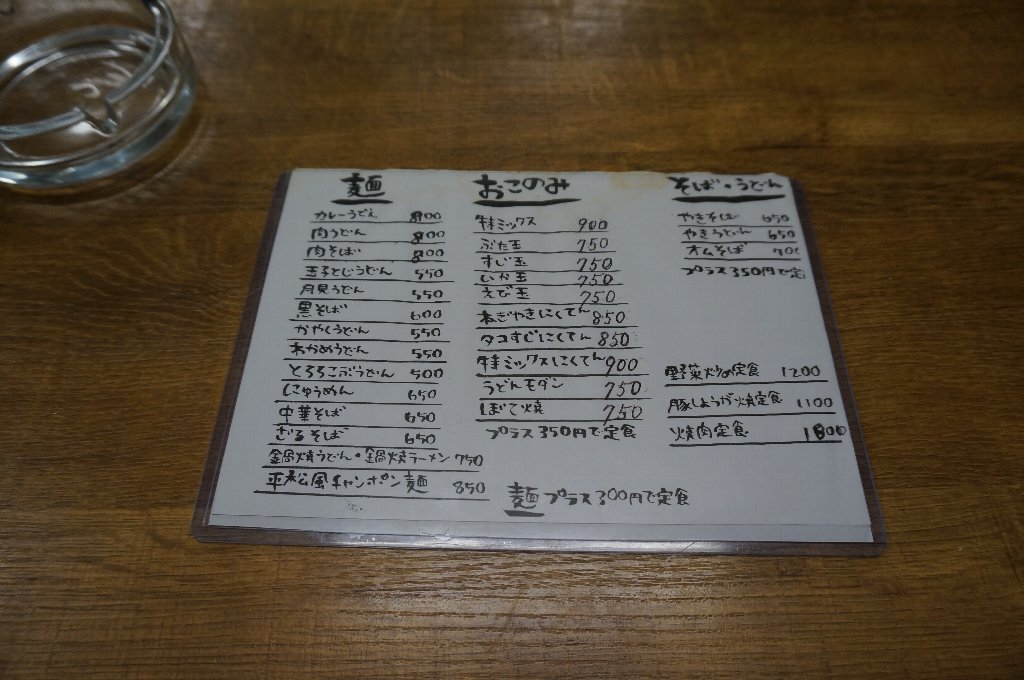 麺
カレーうどん 800
肉うどん 800
肉そば 800
玉子とじうどん 550
月見うどん 550
黒そば 600
かやくうどん 550
わかめうどん 550
とろろこぶうどん 500
にゅうめん 650
中華そば 650
ざるそば 650
鍋焼うどん・鍋焼ラーメン 750
平松風チャンポン麺 850
おこのみ
特ミックス 900
ぶた玉 750
すじ玉 750
いか玉 750
えび玉 750
ねぎやきにくてん 850
タコすじにくてん 850
特ミックスにくてん 900
うどんモダン 750
ぼて焼 750
プラス350円で定食
麺プラス300円で定食
そば・うどん
やきそば 650
やきうどん 650
オムそば 700
プラス350円で定
野菜炒め定食 1200
豚しょうが焼定食 1100
焼肉定食